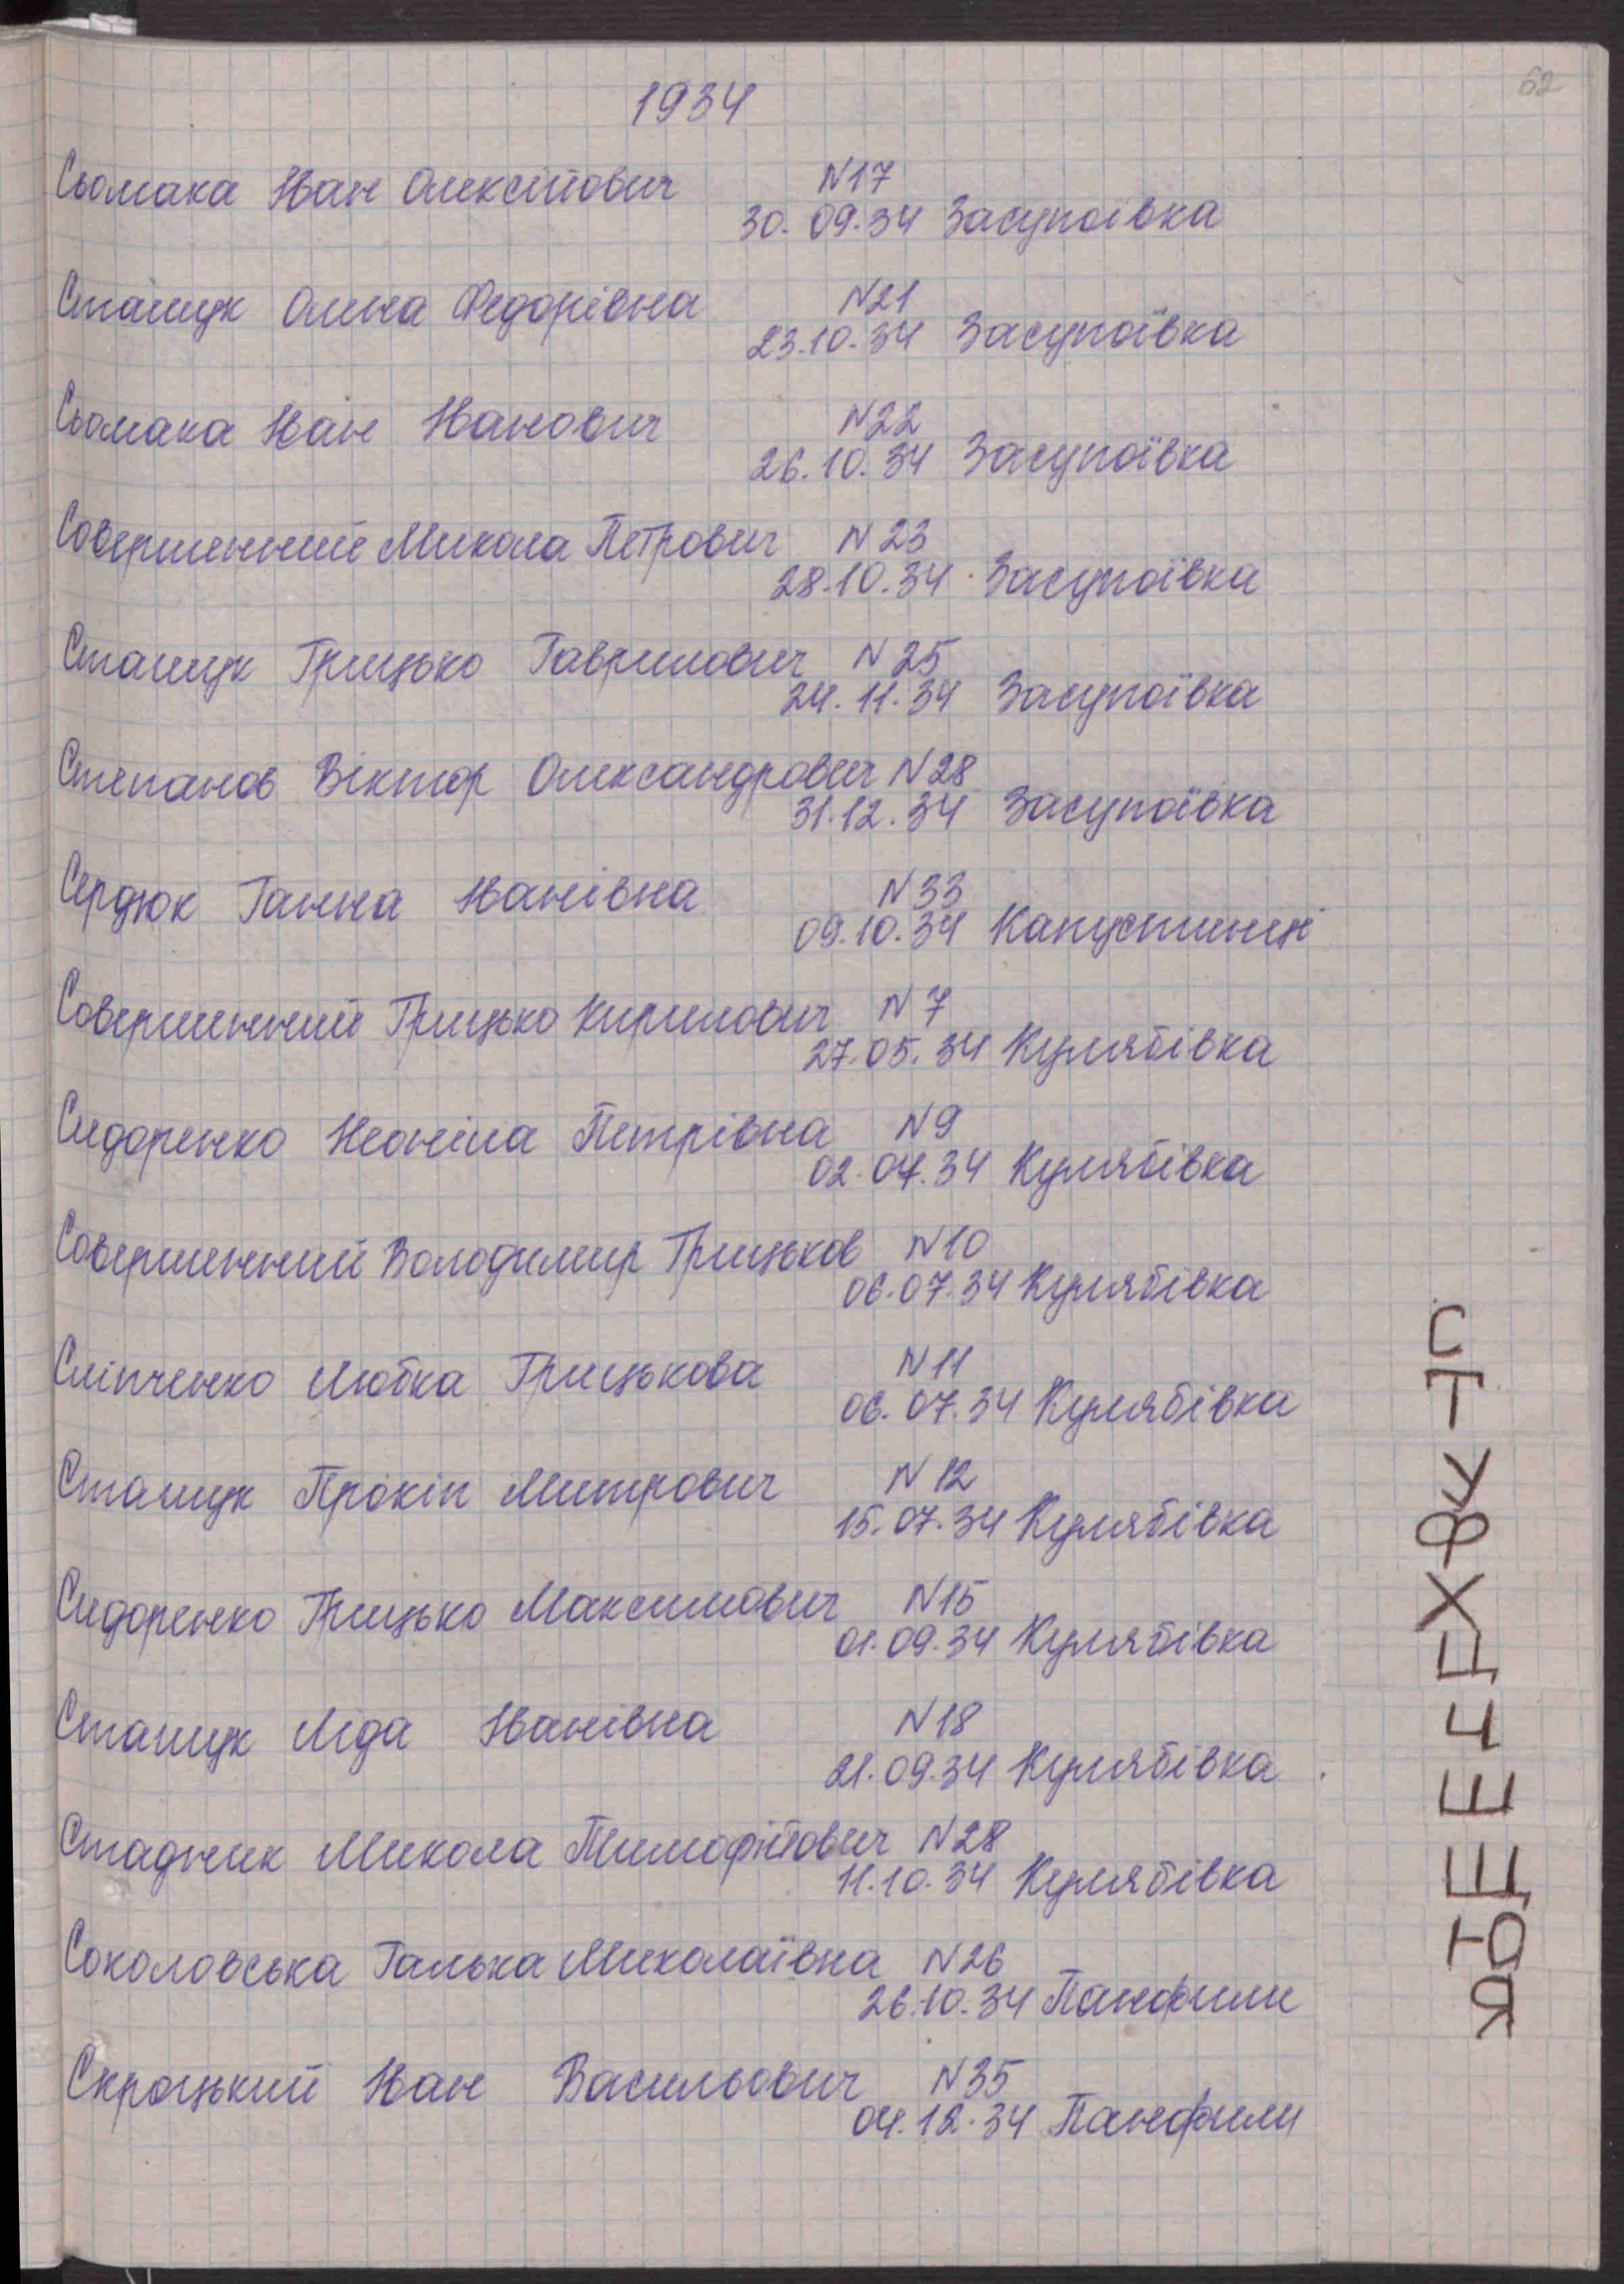 62
1934
Сьомака Іван Олексійович N17
30.09.34 Засупоївка
Сташук Олена Федорівна N21
23.10.34 Засупоївка
Сьомака Іван Іванович N22
26.10.34 Засупоївка
Совершенний Микола Петрович N23
28.10.34 Засупоївка
Сташук Грицько Гаврилович N25
24.11.34 Засупоївка
Степанов Віктор Олександрович N28
31.12.34 Засупоївка
Сердюк Ганна Іванівна N33
09.10.34 Капустинці
Совершенний Грицько Кирилович N7
27.05.34 Кулябівка
Сидоренко Неоніла Петрівна N9
02.07.34 Кулябівка
Совершенний Володимир Грицьков N10
06.07.34 Кулябівка
Сліпченко Любка Грицькова N11
06.07.34 Кулябівка
Сташук Прокіп Митрович N12
15.07.34 Кулябівка
Сидоренко Грицько Максимович N15
01.09.34 Кулябівка
Сташук Ліда Іванівна N18
21.09.34 Кулябівка
Стадник Микола Тимофійович N28
11.10.34 Кулябівка
Соколовська Галька Миколаївна N26
26.10.34 Панфили
Скроцький Іван Васильович N35
04.12.34 Панфили
С Т У Ф Х Ц Ч Ш Щ Ю Я